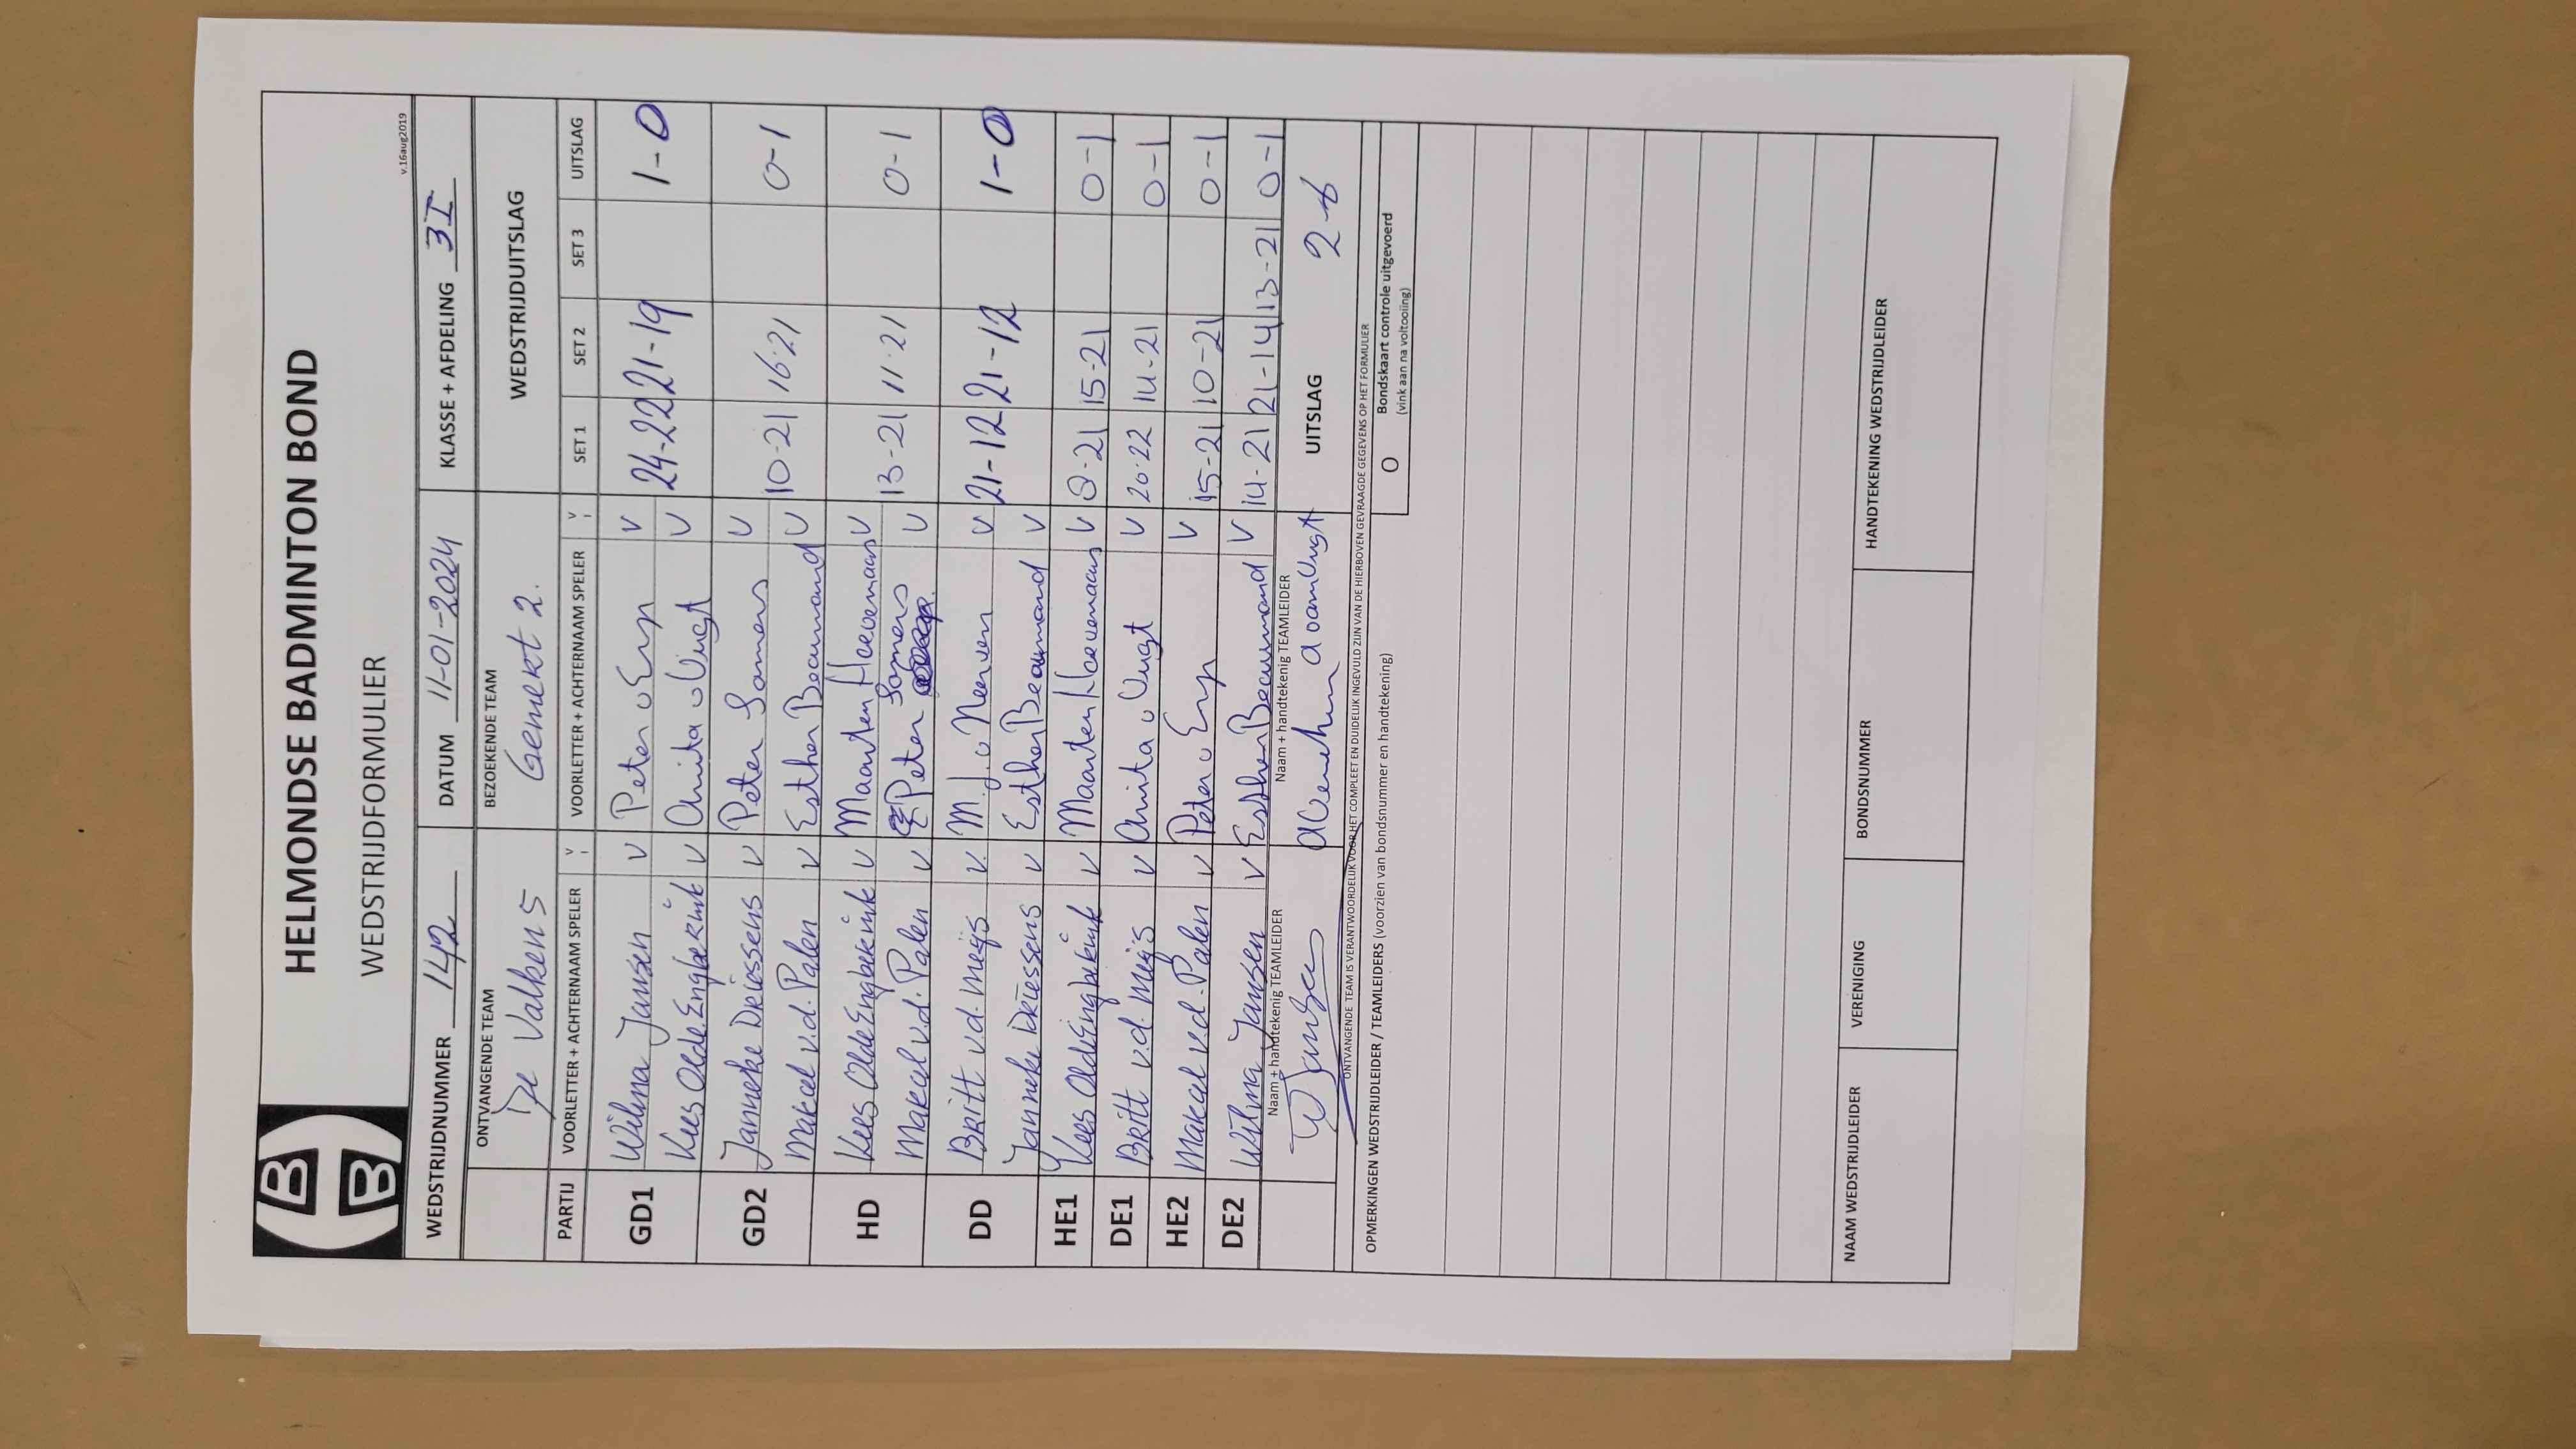 HELMONDSE BADMINTON BOND
WEDSTRIJDFORMULIER
v.16aug2019
WEDSTRIJDNUMMER 142 DATUM 11-01-2024 KLASSE + AFDELING 3I
ONTVANGENDE TEAM BEZOEKENDE TEAM WEDSTRIJDUITSLAG
De Valken 5 Gemert 2.
PARTIJ VOORLETTER + ACHTERNAAM SPELER V VOORLETTER + ACHTERNAAM SPELER V SET 1 SET 2 SET 3 UITSLAG
GD1 Wilma Jansen V Peter v Erp V 24-22 21-19 1-0
Kees Olde Engberink V Anita v Vugt V
GD2 Janneke Driessens V Peter Somers V 10-21 16-21 0-1
Marcel v.d. Palen V Esther Beaumond V
HD Kees Olde Engberink V Maarten Heevemaans V 13-21 11-21 0-1
Marcel v.d. Palen V Peter Somers V
DD Britt v.d. Meijs V. M.J. v Neerven V 21-12 21-12 1-0
Janneke Driessens V Esther Beaumond V
HE1 Kees Olde Engberink V Maarten Heevemaans V 8-21 15-21 0-1
DE1 Britt v.d. Meijs V Anita v Vugt V 20-22 14-21 0-1
HE2 Marcel v.d. Palen V Peter v Erp V 15-21 10-21 0-1
DE2 Wilma Jansen V Esther Beaumond V 14-21 21-14 13-21 0-1
Naam + handtekenig TEAMLEIDER Naam + handtekenig TEAMLEIDER UITSLAG 2-6
W Jansen
ONTVANGENDE TEAM IS VERANTWOORDELIJK VOOR HET COMPLEET EN DUIDELIJK INGEVULD ZIJN VAN DE HIERBOVEN GEVRAAGDE GEGEVENS OP HET FORMULIER
OPMERKINGEN WEDSTRIJDLEIDER / TEAMLEIDERS (voorzien van bondsnummer en handtekening)
O Bondskaart controle uitgevoerd
(vink aan na voltooiing)
NAAM WEDSTRIJDLEIDER VERENIGING BONDSNUMMER HANDTEKENING WEDSTRIJDLEIDER